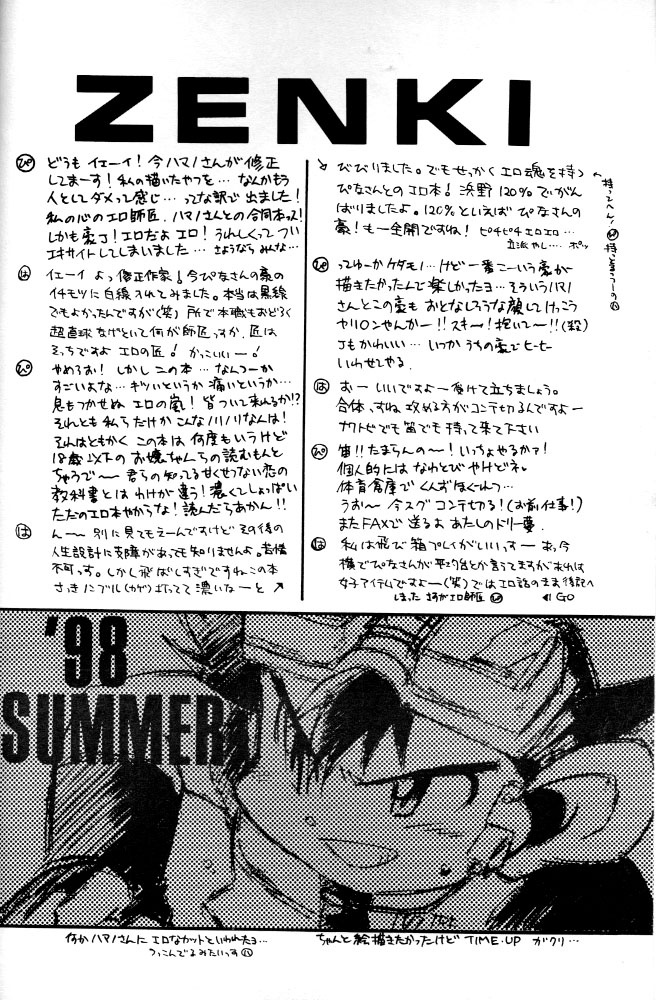 ZENKI
ぴ どうも イエーイ!今ハマノさんが修正
してまーす!私の描いたやつを…なんかもう
人としてダメって感じ…ってな訳で出ました!
私の心のエロ師匠、ハマノさんとの合同本っス!
しかも豪だ!エロだよ エロ!うれしくってつい
エキサイトしてしまいました…さようなら みんな…
は イエーイ よっ修正作家!今ぴなさんの豪の
イチモツに白線入れてみました。本当は黒線
でもよかったんですが(笑)所で本職もおどろく
超直球なげといて何が師匠っすか、匠は
そっちですよ エロの匠!かっこいいー!
ぴ やめろお!しかしこの本…なんつーか
すごいよな…キツいというか痛いというか…
息もつかせぬ エロの嵐!皆ついて来れるか!?
それとも私らだけかこんなノリノリなんは!
それはともかく この本は何度もいうけど
18歳以下の お嬢ちゃんらの読むもんと
ちゃうで〜 君らの知ってる甘くせつない恋の
教科書とは わけが違う!濃くてしょっぱい
ただのエロ本やからな!読んだらあかん!!
は ん〜 別に見てもえーんですけど その後の
人生設計に支障があっても知りませんよ。苦情
不可っす。しかし飛ばしすぎですねこの本
さっきノーブル(カゲ)打ってて濃いなーと ↗
↘ びびりました。でもせっかくエロ魂を持つ
ぴなさんとのエロ本!浜野120%でがん
ばりましたよ。120%といえばぴなさんの
豪!も一全開ですね!ピチピチエロエロ…
立派やし…ポッ
持ってへん!
ぴ ってゆーかケダモノ…けど一番こーいう豪が
描きたかったんで楽しかったヨ…そういうハマノ
さんとこの豪も おとなしそうな顔してけっこう
ヤリロンやんかー!!スキー!抱いてー!!(殺)
Jもかわいい…いつか うちの豪でヒーヒー
いわせてやる.
は おー いいですよー 受けて立ちましょう。
合体っすね 攻める方がコンテ切るんですよー
ナワトビでも笛でも持って来て下さい
ぴ 笛!!たまらんの〜!いっちょやるかァ!
個人的には なわとび やけどネ。
体育倉庫で くんずほぐれつ…
うお〜 今スグ コンテ切る!(お前仕事!)
またFAXで送るよ あたしのドリー夢.
は 私は飛び箱プレイがいいっすー あっ、今
横でぴなさんが平均台とか言ってますが あれは
女子アイテムですよー(笑)ではエロ話のまま後記へ
しまった さすがエロ師匠 ぴ
◀ GO
'98
SUMMER
何かハマノさんに エロなカットといわれたヨ…
つっこんでるみたいっす は
ちゃんと絵描きたかったけど TIME・UP ガクリ…